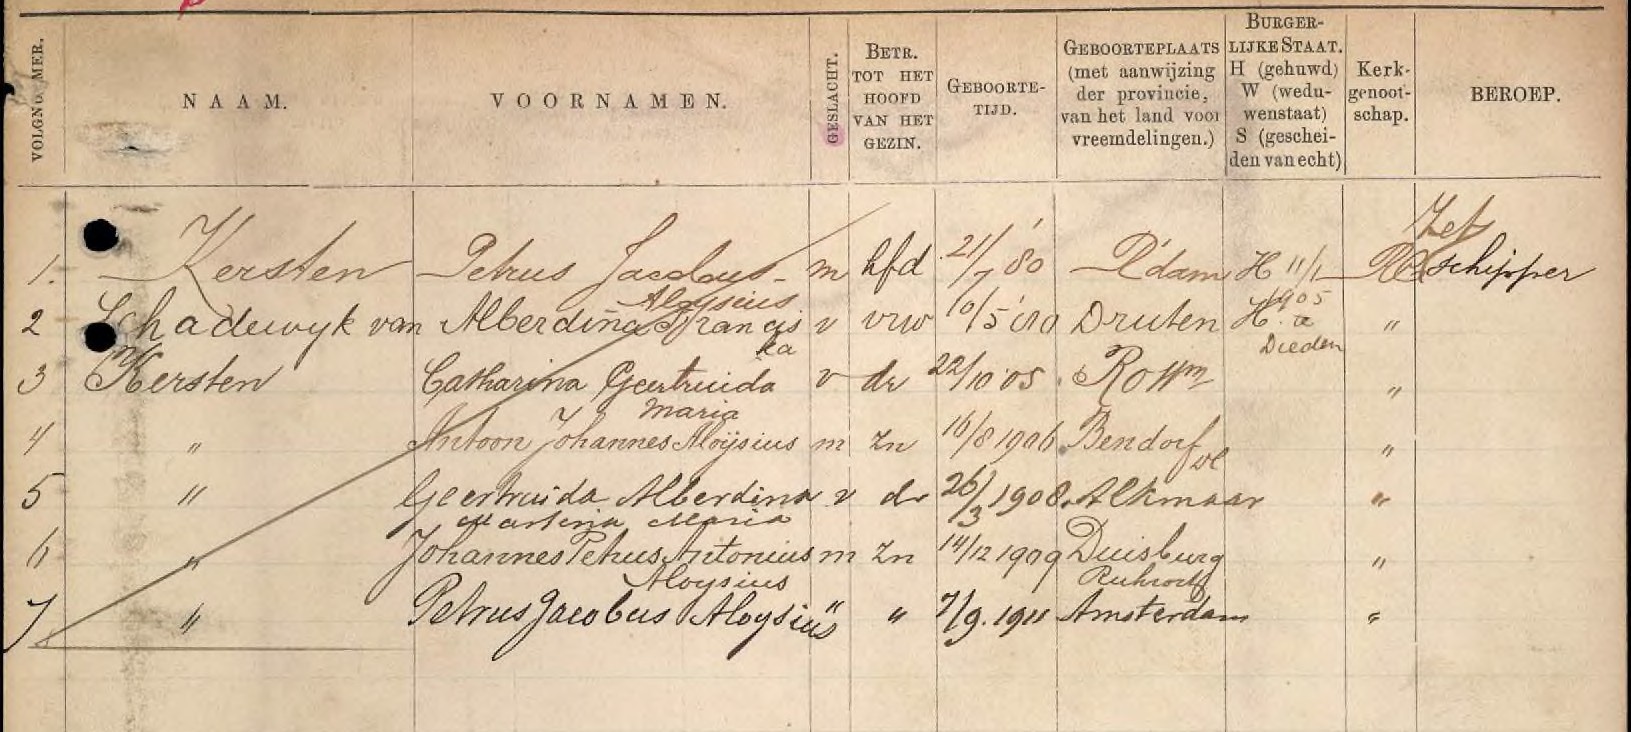 VOLGNUMMER.
NAAM.
VOORNAMEN.
GESLACHT.
BETR.
TOT HET
HOOFD
VAN HET
GEZIN.
GEBOORTE-
TIJD.
GEBOORTEPLAATS
(met aanwijzing
der provincie,
van het land voor
vreemdelingen.)
BURGER-
LIJKE STAAT.
H (gehuwd)
W (wedu-
wenstaat)
S (geschei-
den van echt)
Kerk-
genoot-
schap.
BEROEP.
Zet
1. Kersten Petrus Jacobus m hfd 21/7 '80 R'dam H 11/1 schipper
Aloysius 1905
2 Schadewyk van Alberdina Francis v vrw 10/5 Druten H. a "
ka Dieden
3 Kersten Catharina Geertruida v dr 22/10 05 Rottm "
Maria
4 " Antoon Johannes Aloÿsius m zn 16/8 1906 Bendorf "
5 " Geertruida Alberdina v dr 26/3 1908. Alkmaar "
Martina Maria
6 " Johannes Petrus Antonius m zn 14/12 1909 Duisburg "
Aloysius Ruhrort
7 " Petrus Jacobus Aloysius " " 7/9. 1911 Amsterdam "